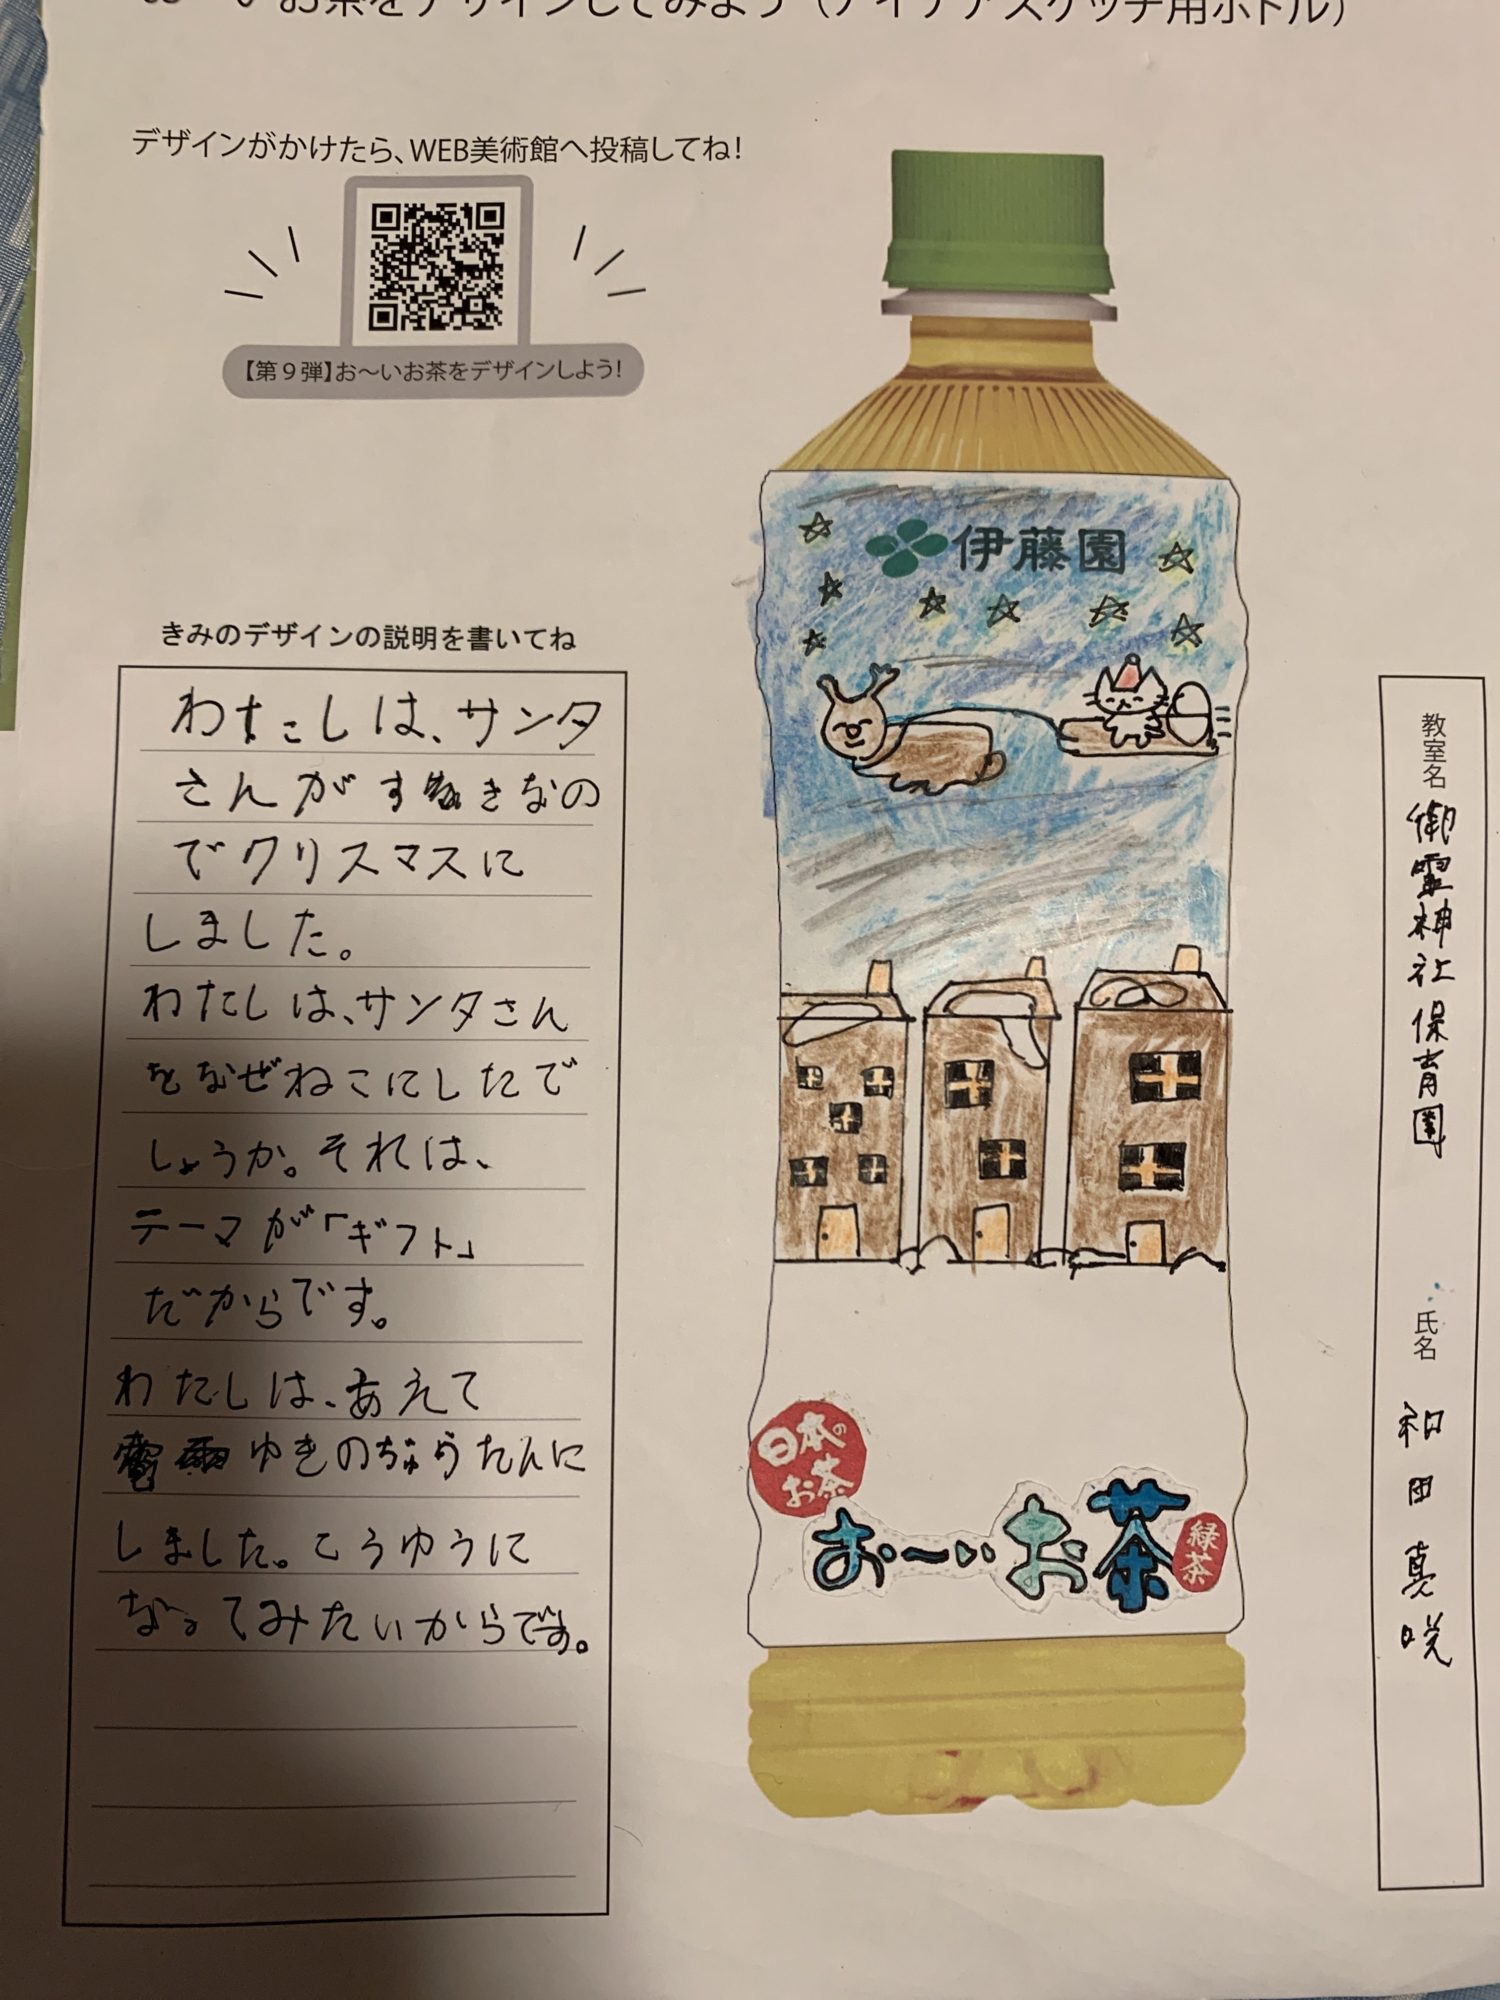 お〜いお茶をデザインしてみよう（アイデアスケッチ用ボトル）
デザインがかけたら、WEB美術館へ投稿してね！
【第９弾】お〜いお茶をデザインしよう！
きみのデザインの説明を書いてね
わたしは、サンタ
さんがすきなの
でクリスマスに
しました。
わたしは、サンタさん
をなぜねこにしたで
しょうか。それは、
テーマが「ギフト」
だからです。
わたしは、あえて
ゆきのぢゅうたんに
しました。こうゆうに
なってみたいからです。
伊藤園
日本の
お茶
お〜いお茶
緑茶
教室名 御霊神社保育園
氏名 和田真咲